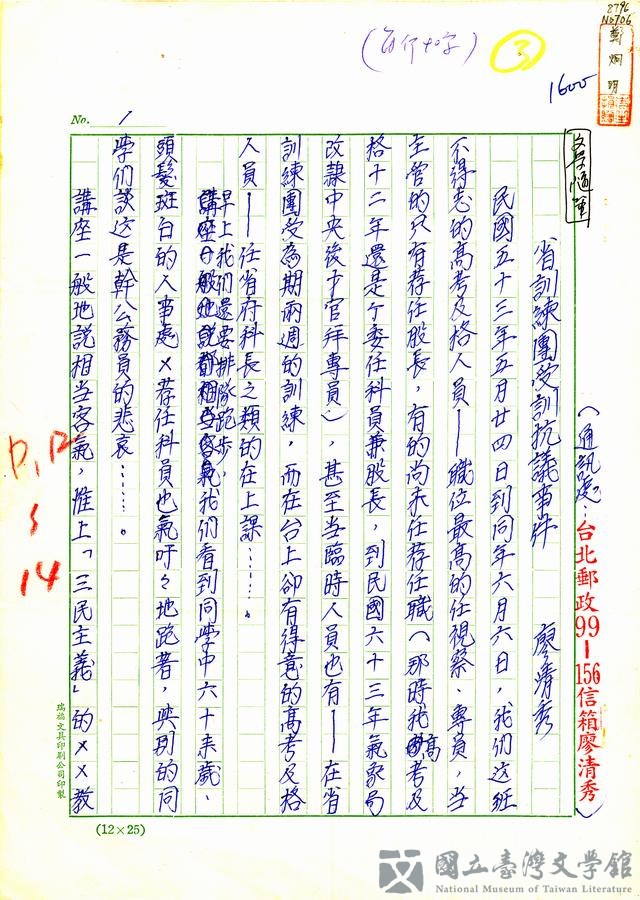 2796
No706
鄭炯明
(每行40字)
3
1600
No. 1
文學隨筆
(通訊處：台北郵政99-156信箱廖清秀)
省訓練團受訓抗議事件　廖清秀
民國五十三年五月廿四日到同年六月六日，我們这班
不得志的高考及格人員——職位最高的任視察、專員，当
主管的只有荐任股長，有的尚未任荐任職(那時我高考及
格十二年還是个委任科員兼股長，到民國六十三年氣象局
改隸中央後才官拜專員)，甚至当臨時人員也有——在省
訓練團受為期兩週的訓練，而在台上卻有得意的高考及格
人員——任省府科長之類的在上課……。
早上我们還要排隊跑步，我们看到同學中六十來歲、
頭髮斑白的人事處×荐任科員也氣吁々地跑着，與別的同
學们談这是幹公務員的悲哀……。
講座一般地説相当客氣，惟上「三民主義」的××教
P.12
14
瑞松文具印刷公司印製
(12×25)
國立臺灣文學館
National Museum of Taiwan Literature